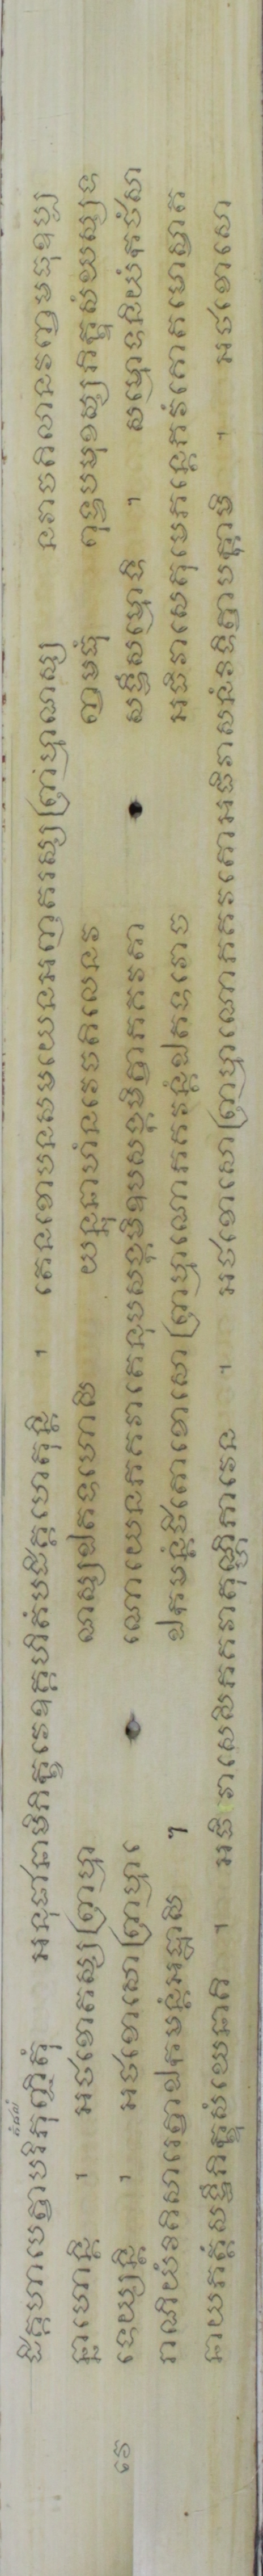 ដិគ្គហាបេត្វាបរិភុញ្ជិតុំ អនុជានាមិភិក្ខវេឧគ្គហិតំបដិគ្គហេតុន្តិ ។ តេនខោបនសមយេនអញតរស្សព្រាហ្មាណស្ស នវាចតិលានវញ្ចមធុឧប្ប
ន្នាហោន្តិ ។ អថខោតស្សព្រាហ្មា ណស្សឯតទហោសិ យន្នូនាហំនវេចតិលេនវ ញ្ចមធុំ ពុទ្ធបមុខស្សភិក្ខុសំឃស្សទ
វេ ទេយ្យន្តិ ។ អថខោសោព្រាហ្មា ណោយេនភគវាតេនុបសង្កមិឧបសង្កមិត្វាភគវតា សទ្ធឹសម្មោទិ ។ សម្មោទនិយំកថំសា
រាណិយំវិតិសារេត្វាឯកមន្តំអដ្ឋាសិ ។ ឯកមន្តំឋិតោខោសោព្រាហ្មាណោភគវន្តំឯតទវោច អធិវាសេតុមេភន្តេភវំគោតមោស្វាត
នាយភត្តំសទ្ធឹភិក្ខុសំឃេនាតិ ។ អធិវាសេសិភគវាតុណ្ហិភាវេន ។ អថខោសោព្រាហ្មាណោភគវតោអធិវាសនំវិទិត្វាបក្កាមិ ។ អថខោសោ